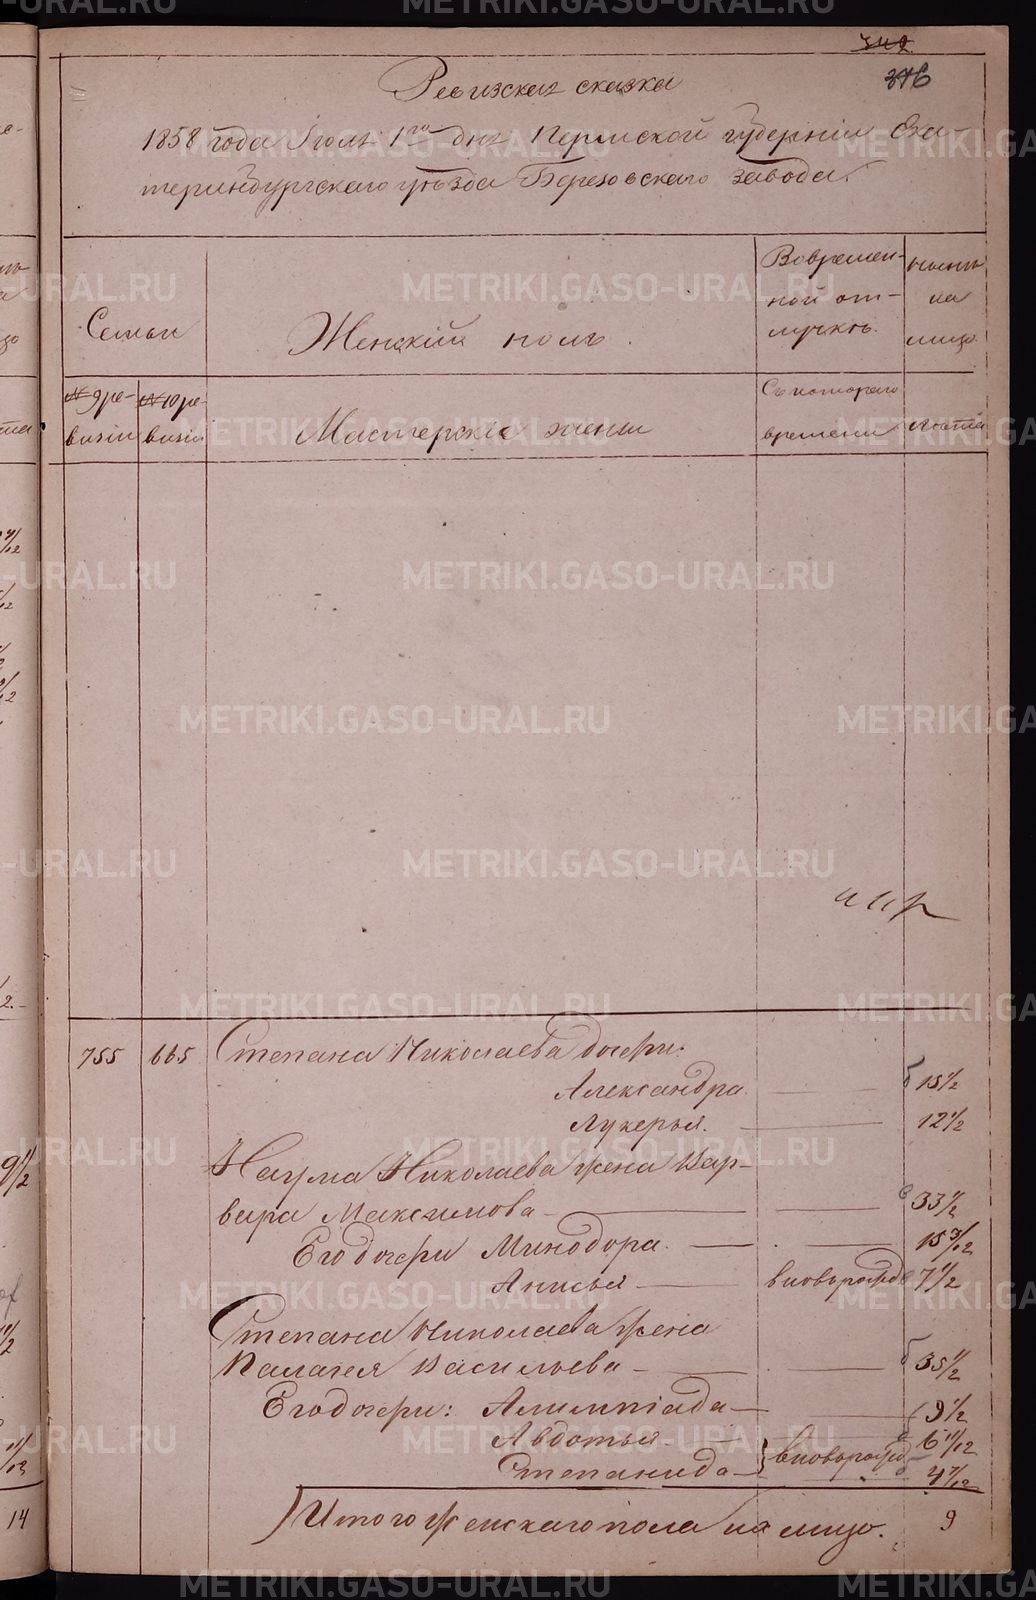 342
316
Ревизская сказка
1858 года Июля 1го дня Пермской губернии Ека-
теринбургскаго уезда Березовскаго завода.
Семьи
Женский полъ.
Вовремен-
ной от-
лучкѣ.
ныне
на
лицо
№ 9 ре-
визии
№ 10 ре-
визии
Мастерские жены
Съ котораго
времени
лѣта
755 665 Степана Николаева дочери:
Александра 15 1/2
Лукерья. 12 1/2
Наума Николаева жена Вар-
вара Максимова 33 1/2
Его дочери Минодора. 15 3/12
Анисья вновьрожд 7 1/2
Степана Николаева жена
Палагея Васильева 35 1/2
Его дочери: Алимпiада 9 1/2
Авдотья 6 11/12
Степанида вновьрожд 4 7/12
Итого женскаго пола на лицо. 9